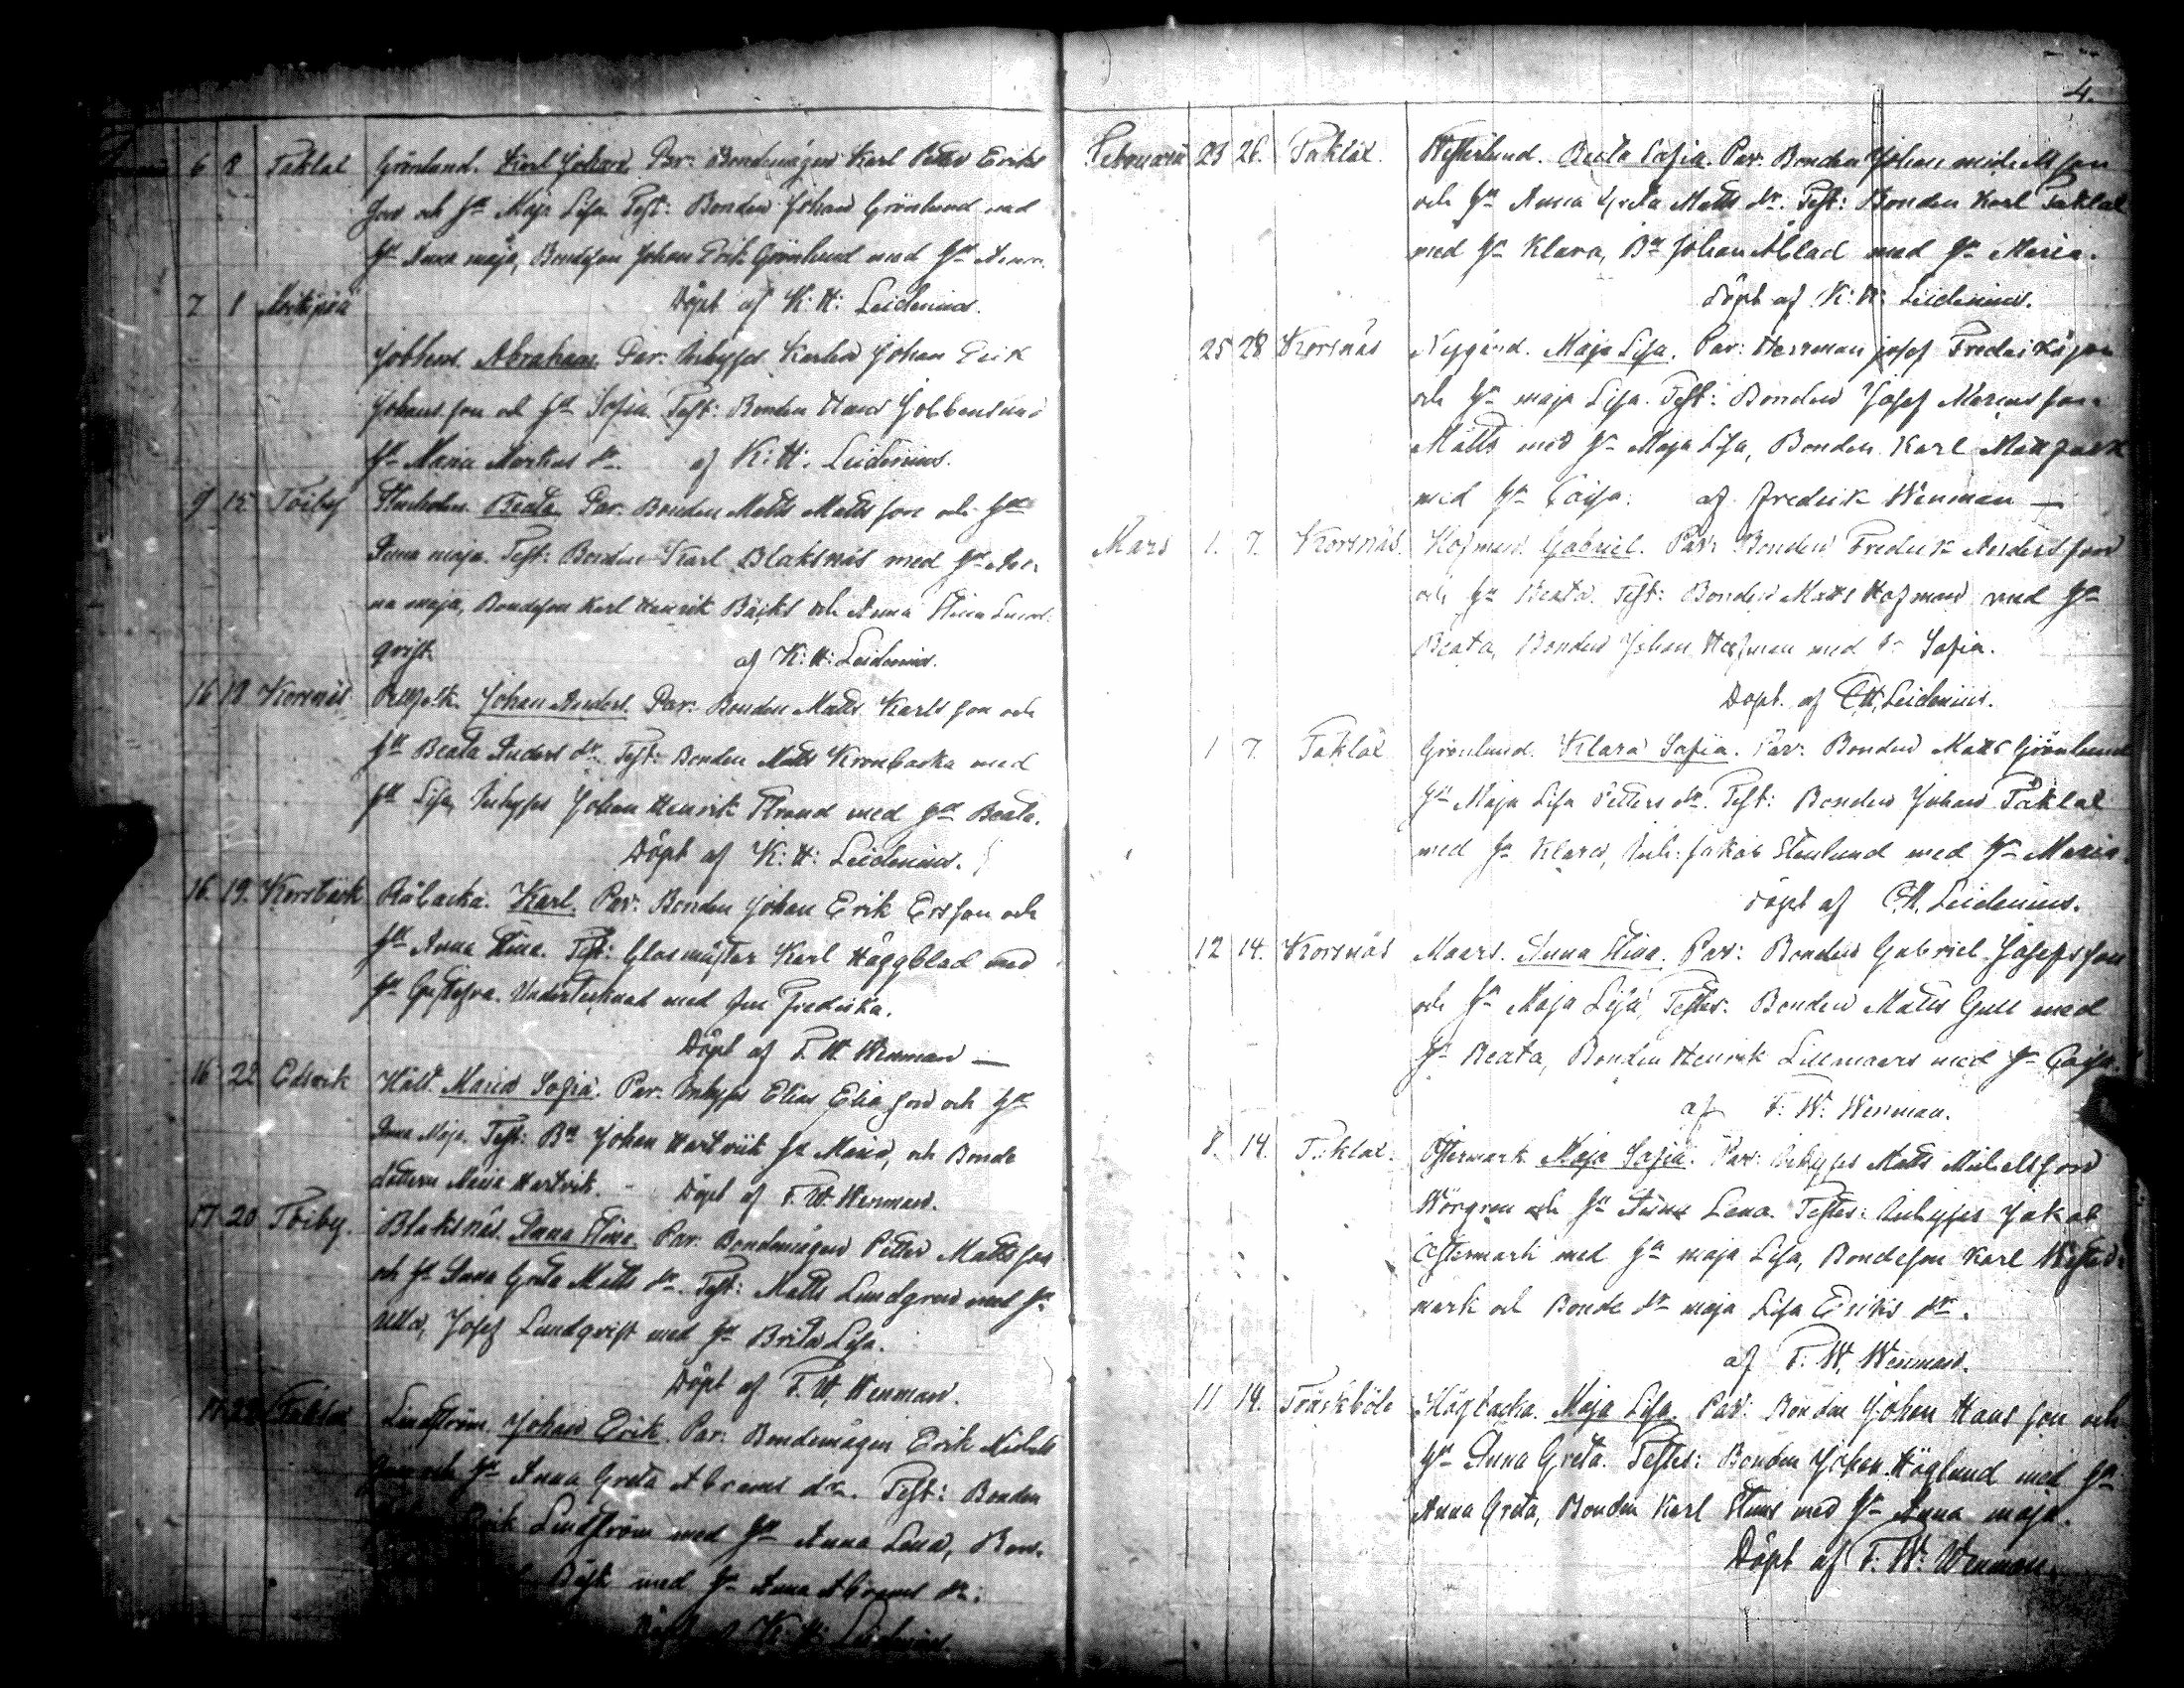 6 8 Taklax Grönlund. Karl Johan. Par: Bondemågen Karl Petter Eriks
son och h:u Maja Lisa. Test: Bonden Johan Grönlund med
h:u Anna maja, Bondeson Johan Erik Grönlund med h:u Anna.
7 1 Döpt af K: H: Leidenius.
Abraham. Par: Inhyses Karlen Johan Erik
Johansson och h:u Sofia. Test: Bonden Hans
h:u Maria Markus dr. af K: H: Leidenius.
9 15 Töiby Beata. Par: Bonden Matts Mattsson och h:u
Anna maja. Test: Bonden Karl Blaksnäs med h:u An
na maja, Bondeson Karl Henrik Bäcks och Anna Stina Lund
qvist. af K: H: Leidenius.
16 18 Korsnäs Johan Anders. Par: Bonden Matts Karlsson och
h:u Beata Anders dr. Test: Bonden Matts Kronbacka med
h:u Lisa, Inhyses Johan Henrik Strand med h:u Beata.
Döpt af K: H: Leidenius.
16. 19. Korsbäck Råbacka. Karl. Par: Bonden Johan Erik Ersson och
h:u Anna Stina. Test: Glasmästar Karl Häggblad med
h:u Gustafva. Undertecknad med fru Fredrika.
Döpt af F. W Wenman —
16 22 Edsvik Häll. Maria Sofia. Par: Inhyses Elias Eliasson och h:u
Anna Maja. Test: B:n Johan Hartvik h:u Maria, och Bonde
dottern Maria Hartvik. - Döpt af F. W. Wenman.
17 20 Töiby. Blaksnäs. Anna Stina. Par: Bondemågen Petter Mattsson
och h:u Anna Greta Matts dr. Test: Matts Lundgren med h:u
Ulla, Josef Lundqvist med h:u Brita Lisa.
Döpt af F. W. Wenman.
Taklax Lindström. Johan Erik. Par: Bondemågen Erik Michels
son och h:u Anna Greta Abrams dr. Test: Bonden
Erik Lindström med h:u Anna Lena, Bon-
med h:u Anna Abrams dr:
Döpt af K: H: Leidenius.
4.
Februarii 23 26. Taklax. Westerlund. Beata Sofia. Par: Bonden Johan Michelsson
och h:u Anna Greta Matts dr. Test: Bonden Karl Taklax
med h:u Klara, B:n Johan Ablad med h:u Maria.
Döpt af K: H: Leidenius.
25 28 Korsnäs Nygård. Maja Lisa. Par: Herrman Josef Fredriksson
och h:u maja Lisa. Test: Bonden Josef Marcusson
Matts med h:u Maja Lisa, Bonden Karl
med h:u Caisa. af Fredrik Wenman —
Mars 1. 7. Korsnäs. Hofman. Gabriel. Par: Bonden Fredrik Andersson
och h:u Beata. Test: Bonden Matts Hofman med h:u
Beata, Bonden Johan Hofman med h:u Sofia.
Döpt. af C.H. Leidenius.
1 7. Taklax Grönlund. Klara Sofia. Par: Bonden Matts Grönlund
h:u Maja Lisa Petters dr. Test: Bonden Johan Taklax
med h:u Klara, Inh: Jakob Stenlund med h:u Maria.
Döpt af C.H. Leidenius.
12 14. Korsnäs Maars. Anna Stina. Par: Bonden Gabriel Josefsson
och h:u Maja Lisa, Testes: Bonden Matts Gull med
h:u Beata, Bonden Henrik Lillmaars med h:u Caisa.
af F: W: Wenman.
8. 14. Taklax. Östermark. Maja Sofia. Par: Inhyses Matts Michelsson
Norgren och h:u Anna Lena. Testes: Inhyses Jakob
Östermark med h:u maja Lisa, Bondeson Karl Wester-
mark och Bonde dr maja Lisa Eriks dr.
af F. W. Wenman.
11 14. Träskböle Högbacka. Maja Lisa. Par: Bonden Johan Hansson och
h:u Anna Greta. Testes: Bonden Johan Höglund med h:u
Anna Greta, Bonden Karl Stens med h:u Anna maja.
Döpt af F. W. Wenman.